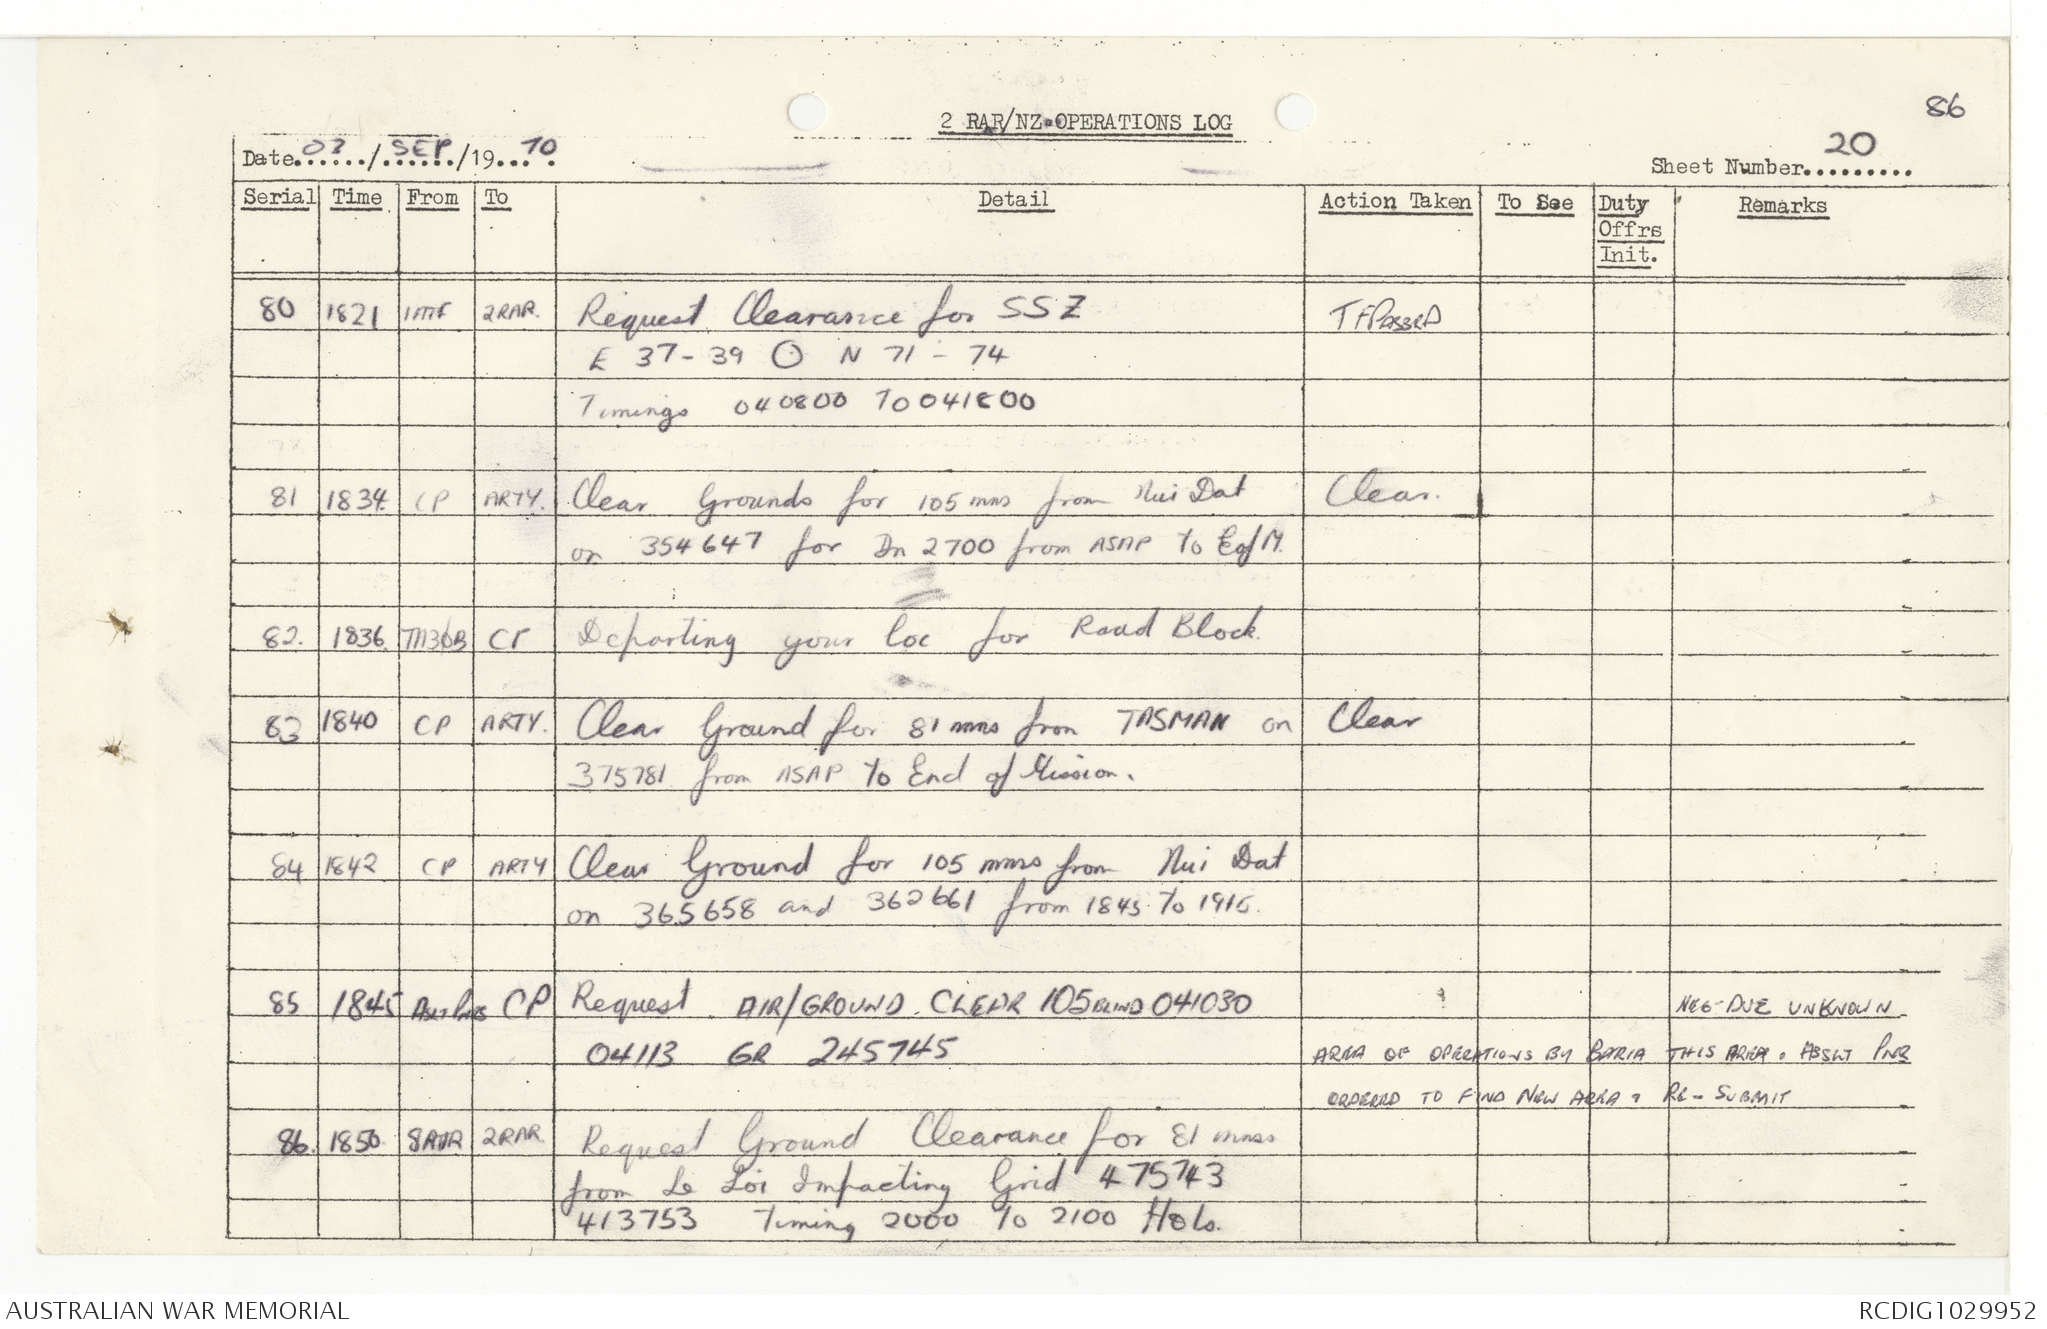 86
2 RAR/NZ OPERATIONS LOG
Date 03 / SEP /19 70
Sheet Number 20
Serial Time From To Detail Action Taken To See Duty Offrs Init. Remarks
80 1821 1ATF 2RAR. Request Clearance for SSZ
E 37-39 N 71 - 74
Timings 040800 TO 041800
81 1834 CP ARTY. Clear Grounds for 105 mms from Nui Dat Clear.
on 354647 for Dn 2700 from ASAP To E of M.
82. 1836 CP Departing your loc for Road Block.
83 1840 CP ARTY. Clear Ground for 81 mms from TASMAN on Clear
375781 from ASAP To End of Mission.
84 1842 CP ARTY Clear Ground for 105 mms from Nui Dat
on 365658 and 362661 from 1845 To 1915.
85 1845 CP Request AIR/GROUND. CLEAR 105 BLIND 041030 NEG-DUE UNKNOWN
04113 GR 245745 AREA OF OPERATIONS BY BARIA THIS AREA. ASSLT PNR
ORDERED TO FIND NEW AREA & RE-SUBMIT
86. 1850 2RAR. Request Ground Clearance for 81 mms
from Le Loi Impacting Grid 475743
413753 Timing 2000 To 2100
AUSTRALIAN WAR MEMORIAL
RCDIG1029952